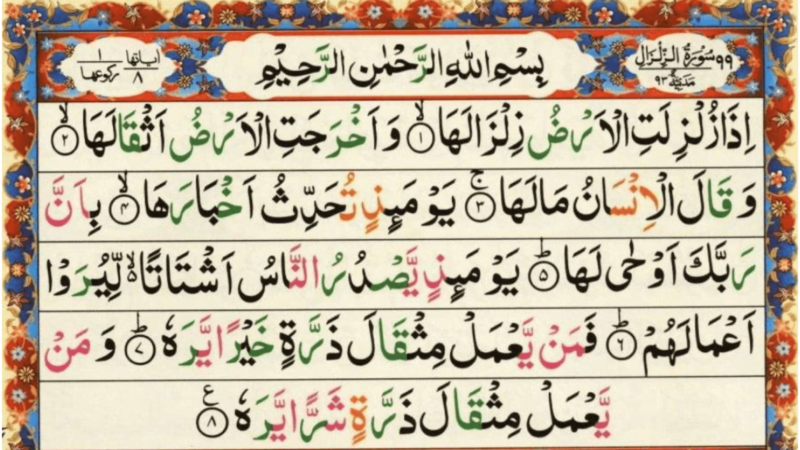 ٩٩ سُوْرَةُ الزِّلْزَال مَدَنِيَّةٌ ٩٣
بِسْمِ اللّٰهِ الرَّحْمٰنِ الرَّحِيْمِ
اٰيَاتُهَا ٨ رُكُوْعُهَا ١
اِذَا زُلْزِلَتِ الْاَرْضُ زِلْزَالَهَا ۙ﴿١﴾ وَ اَخْرَجَتِ الْاَرْضُ اَثْقَالَهَا ۙ﴿٢﴾
وَ قَالَ الْاِنْسَانُ مَا لَهَا ۚ﴿٣﴾ يَوْمَئِذٍ تُحَدِّثُ اَخْبَارَهَا ۙ﴿٤﴾ بِاَنَّ
رَبَّكَ اَوْحٰى لَهَا ؕ﴿٥﴾ يَوْمَئِذٍ يَّصْدُرُ النَّاسُ اَشْتَاتًا ۙ لِّيُرَوْا
اَعْمَالَهُمْ ؕ﴿٦﴾ فَمَنْ يَّعْمَلْ مِثْقَالَ ذَرَّةٍ خَيْرًا يَّرَهٗ ؕ﴿٧﴾ وَ مَنْ
يَّعْمَلْ مِثْقَالَ ذَرَّةٍ شَرًّا يَّرَهٗ ﴿٨﴾ ع